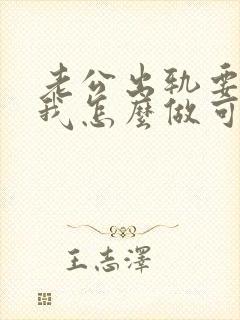 老公出轨要
我怎麼做可
王志澤